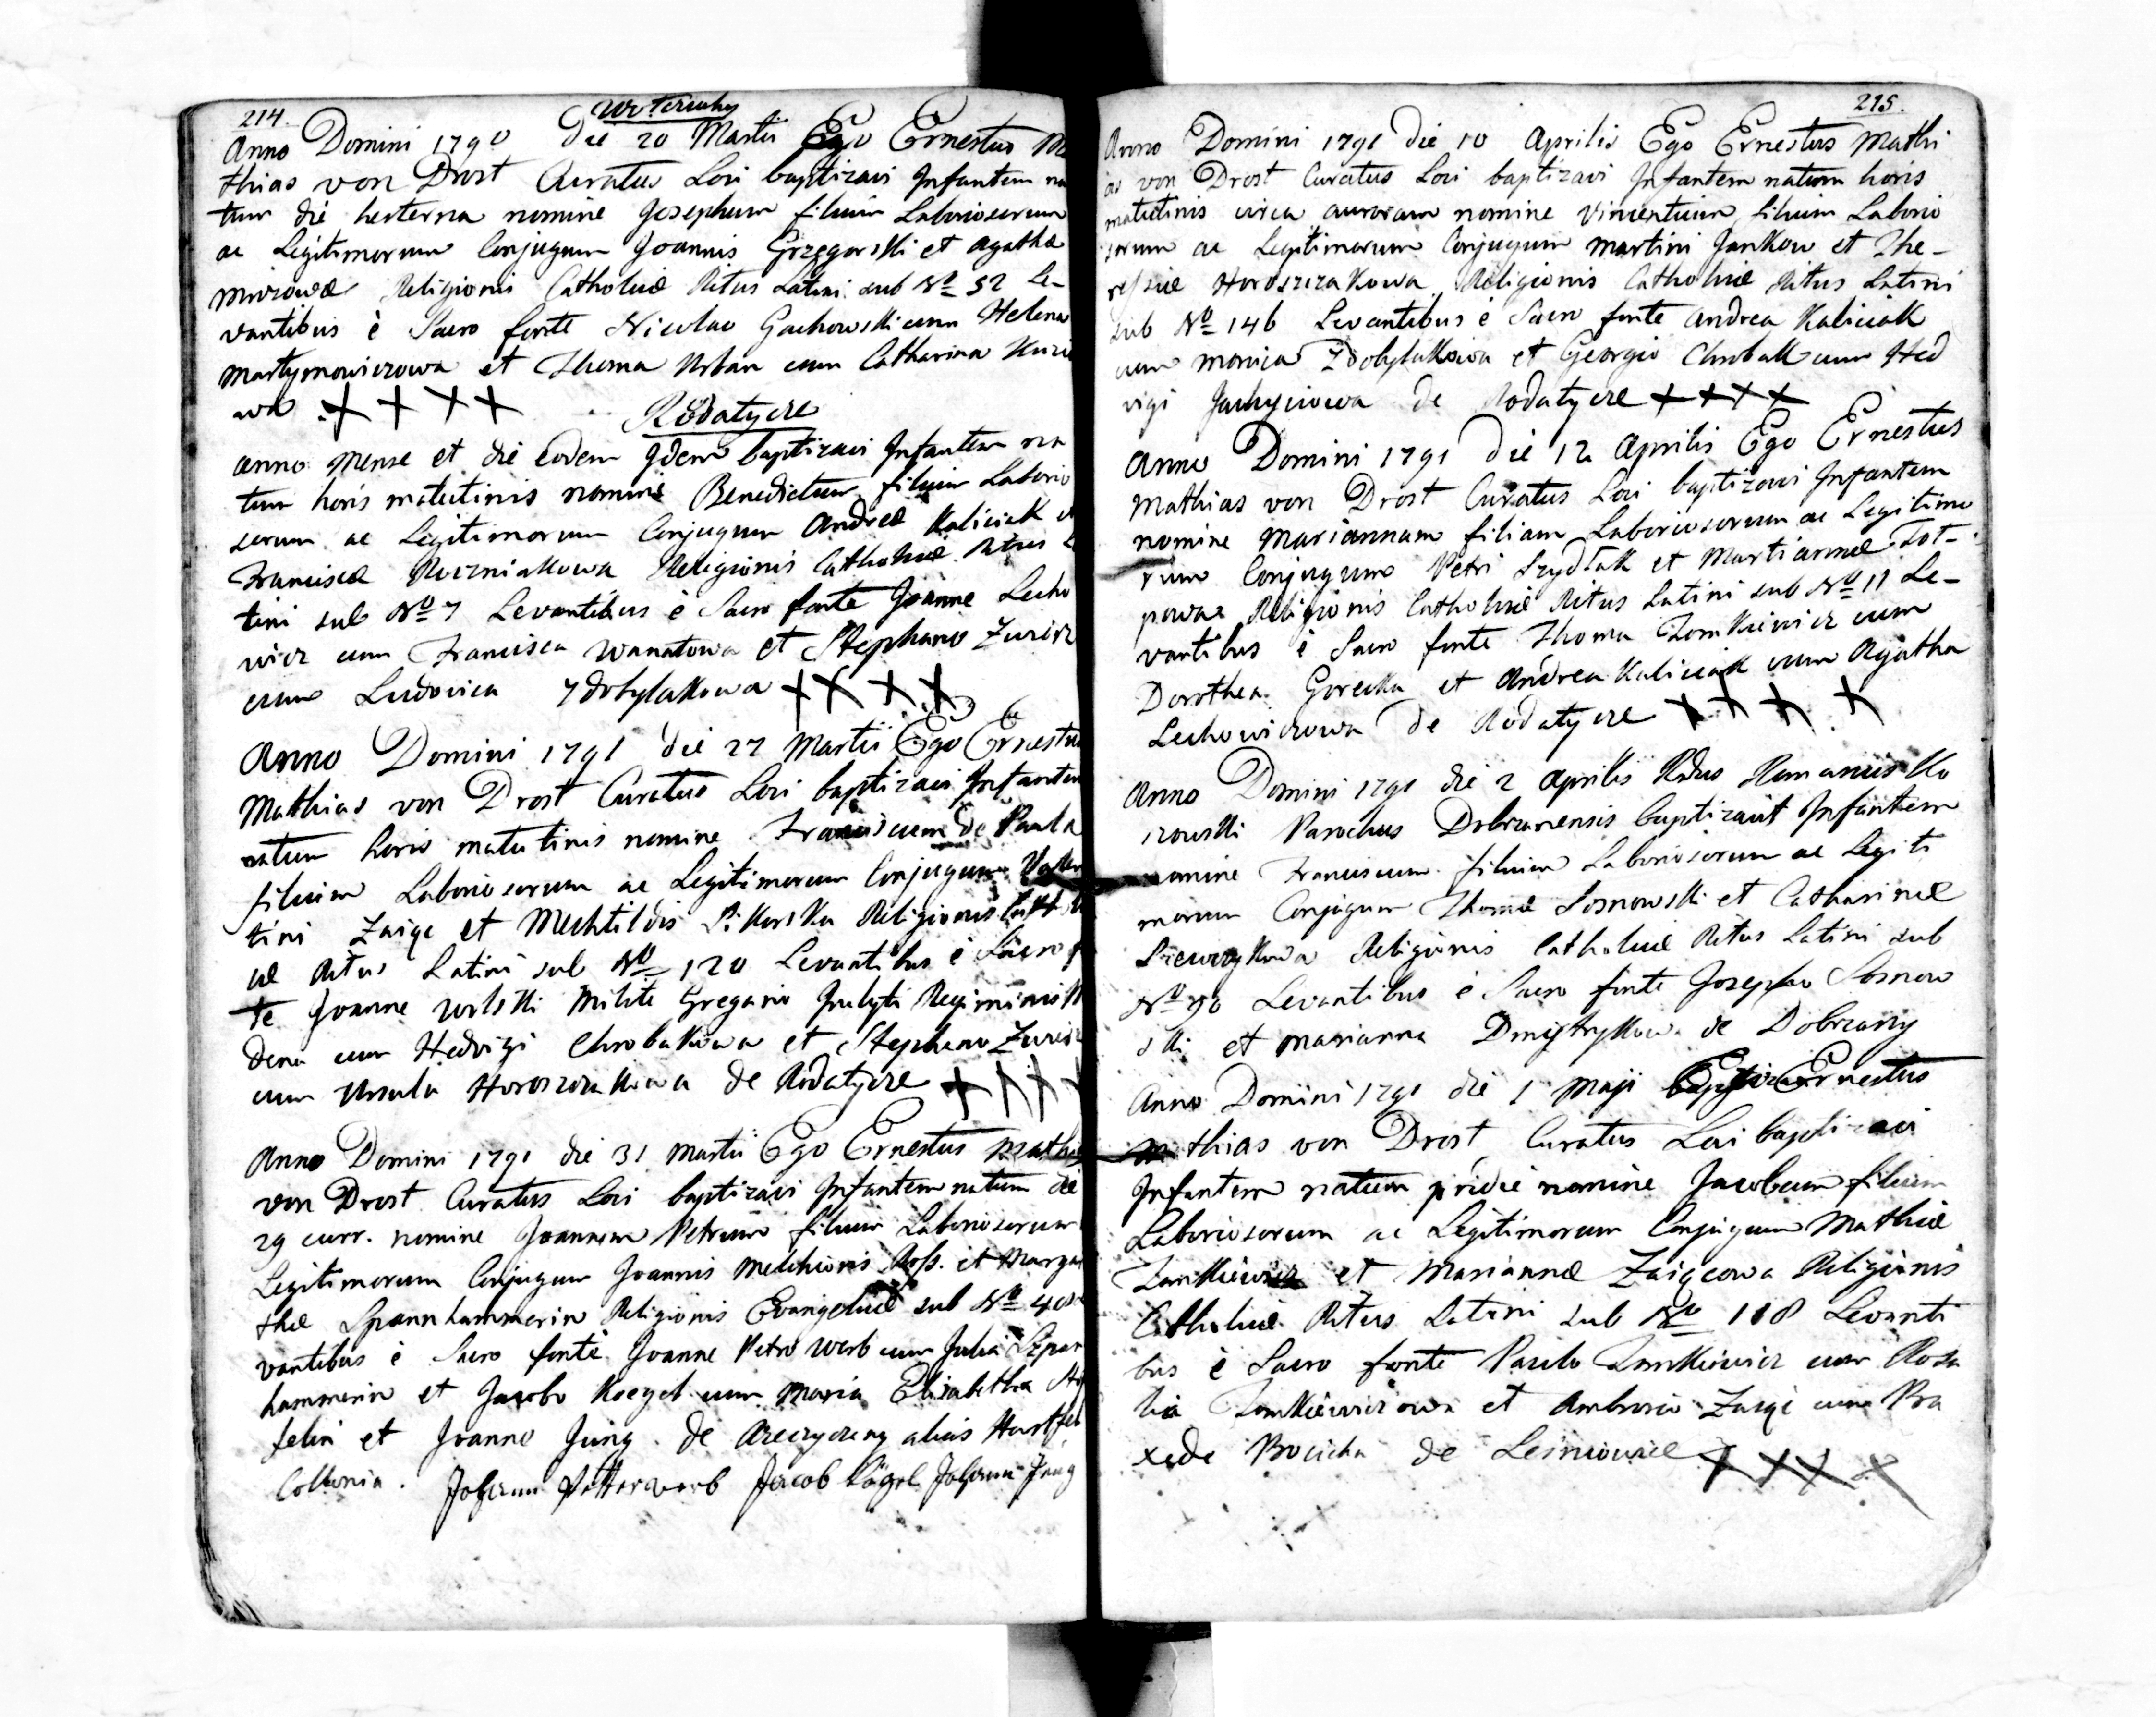 214.
Anno Domini 1790 die 20 Martii Ego Ernestus Ma
thias von Drost Curatus Loci baptizavi Infantem na
tum die hesterna nomine Josephum filium Laboriosorum
ac Legitimorum Conjugum Joannis Grzegorski et Agathæ
Religionis Catholicæ Ritus Latini sub No 52 Le-
vantibus è Sacro fonte Nicolao Gachowski cum Helena
Martynowiczowa et Thoma Urban cum Catharina
wa ++++
Rodatycze
Anno Mense et die Eodem Idem baptizavi Infantem na
tum horis matutinis nomine Benedictum filium Laborio
sorum ac Legitimorum Conjugum Andreæ Kaliciak
Franciscæ Religionis Catholicæ Ritus
tini sub No 7 Levantibus è Sacro fonte Joanne Lecho
wicz cum Francisca Wanatowa et Stephano
cum Ludovica Zdobylakowa ++++
Anno Domini 1791 die 27 Martii Ego Ernestus
Mathias von Drost Curatus Loci baptizavi Infantem
natum horis matutinis nomine Franciscum de Paula
filium Laboriosorum ac Legitimorum Conjugum
tini Zaiąc et Mechtildis Religionis
æ Ritus Latini sub No 120 Levantibus è Sacro
te Joanne Wolski Milite Gregario Inclyti Regiminis
dena cum Hedvigi Chrobakowa et Stephano
cum Ursula Horoszczakowa de Rodatycze ++++
Anno Domini 1791 die 31 Martii Ego Ernestus Mathias
von Drost Curatus Loci baptizavi Infantem natum die
29 curr. nomine Joannem Petrum filium Laboriosorum
Legitimorum Conjugum Joannis Melchioris et Marga
thæ Spannhammerin Religionis Evangelicæ sub No
vantibus è Sacro fonte Joanne Petro Werb cum Julia
hammerin et Jacobo Koegel cum Maria Elisabetha
felin et Joanne Jung de alias Hartfel
Collonia. Johann Petter Werb Jacob Kögel Johann Jung
215.
Anno Domini 1791 die 10 Aprilis Ego Ernestus Mathi
as von Drost Curatus Loci baptizavi Infantem natum horis
matutinis circa auroram nomine Vincentium filium Laborio
sorum ac Legitimorum Conjugum Martini Jankow et The-
ressiæ Horoszczakowa Religionis Catholicæ Ritus Latini
sub No 146 Levantibus è Sacro fonte Andrea Kaliciak
cum Monica Zdobylakowa et Georgio Chrobak cum Hed
vigi de Rodatycze ++++
Anno Domini 1791 die 12 Aprilis Ego Ernestus
Mathias von Drost Curatus Loci baptizavi Infantem
nomine Mariannam filiam Laboriosorum ac Legitimo
rum Conjugum Petri Szydłak et Martiannæ
Religionis Catholicæ Ritus Latini sub No 11 Le-
vantibus è Sacro fonte Thoma Tomkiewicz cum
Dorothea Gorecka et Andrea Kaliciak cum Agatha
Lechowiczowa de Rodatycze ++++
Anno Domini 1791 die 2 Aprilis Rdus Romanus Ko
zowski Parochus Dobrzanensis baptizavit Infantem
nomine Franciscum filium Laboriosorum ac Legiti
morum Conjugum Thomæ Sosnowski et Catharinæ
Religionis Catholicæ Ritus Latini sub
No 90 Levantibus è Sacro fonte Josepho Sosnow
ski et Marianna de Dobrzany
Anno Domini 1791 die 1 Maji Ernestus
Mathias von Drost Curatus Loci baptizavi
Infantem natum pridie nomine Jacobum filium
Laboriosorum ac Legitimorum Conjugum Mathiæ
et Mariannæ Zaiącowa Religionis
Catholicæ Ritus Latini sub No 118 Levanti
bus è Sacro fonte Paulo cum Rosa
lia et Ambrosio Zaiąc cum Pra
xede de ++++